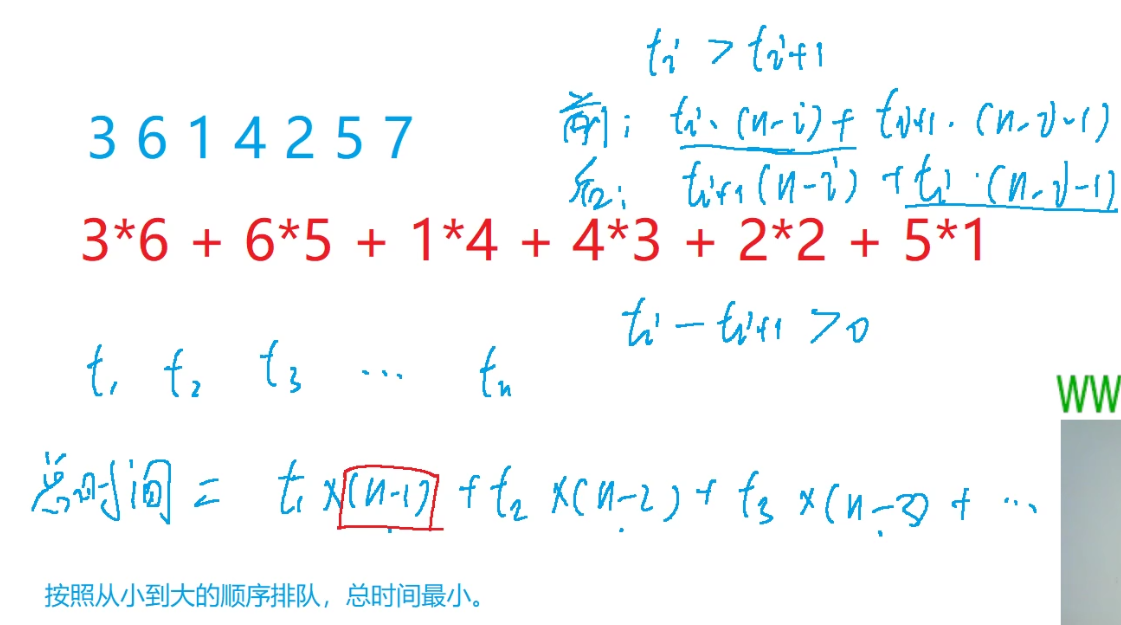 tᵢ > tᵢ₊₁
3 6 1 4 2 5 7
前: tᵢ·(n-i)+ tᵢ₊₁·(n-i-1)
后: tᵢ₊₁(n-i) + tᵢ·(n-i-1)
3*6 + 6*5 + 1*4 + 4*3 + 2*2 + 5*1
tᵢ - tᵢ₊₁ > 0
t₁ t₂ t₃ ... tₙ
WW
总时间 = t₁ ×(n-1) + t₂ ×(n-2) + t₃ ×(n-3) + ...
按照从小到大的顺序排队，总时间最小。